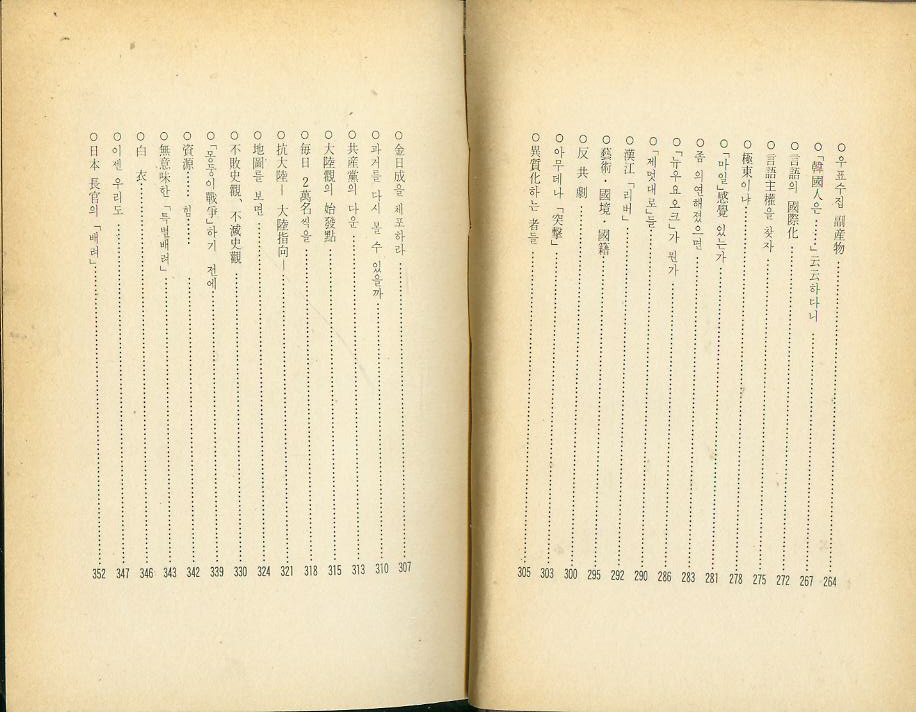 ○우표수집 副産物 264
○「韓國人은……」云云하다니 267
○言語의 國際化 272
○言語主權을 찾자 275
○極東이냐 278
○「마일」感覺 있는가 281
○좀 의연해졌으면 283
○「뉴우요오크」가 뭔가 286
○「제멋대로」들 290
○漢江「리버」 292
○藝術・國境・國籍 295
○反共劇 300
○아무데나「突擊」 303
○異質化하는 者들 305
○金日成을 체포하라 307
○과거를 다시 볼 수 있을까 310
○共産黨의 다운 313
○大陸觀의 始發點 315
○毎日 2萬名씩을 318
○抗大陸— 大陸指向— 321
○地圖를 보면 324
○不敗史觀、不滅史觀 330
○「몽둥이戰爭」하기 전에 339
○資源…… 힘…… 342
○無意味한「특별배려」 343
○白 衣 346
○이젠 우리도 347
○日本 長官의「배려」 352